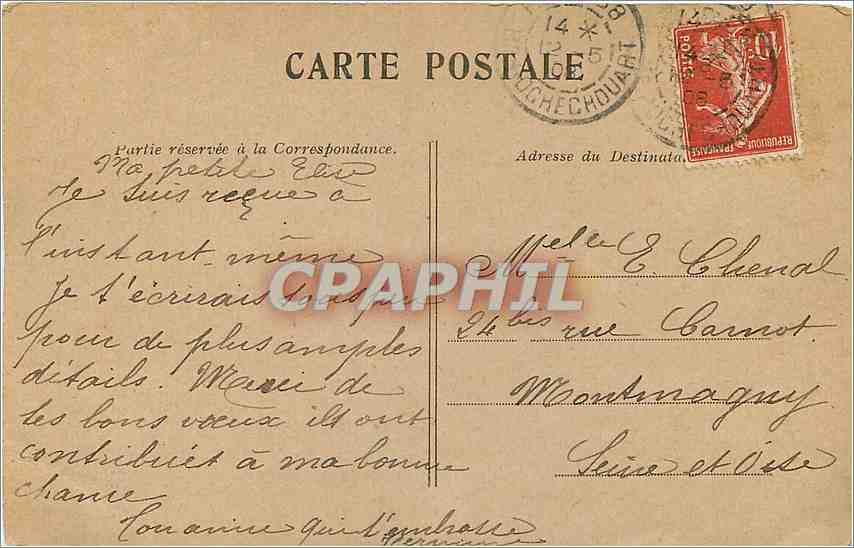 CARTE POSTALE
14 *
12 -5
08
ROCHECHOUART
10
POSTES
REPUBLIQUE FRANÇAISE
Partie réservée à la Correspondance.
Adresse du Destinata
Ma petite Elise
Je suis reçue à
l'instant même
Je t'écrirais sous peu
pour de plus amples
détails. Merci de
tes bons vœux ils ont
contribuét à ma bonne
chance
Ton amie qui t'embrasse
Germaine
Melle E. Chenal
24 bis rue Carnot.
Montmagny
Seine et Oise
CPAPHIL